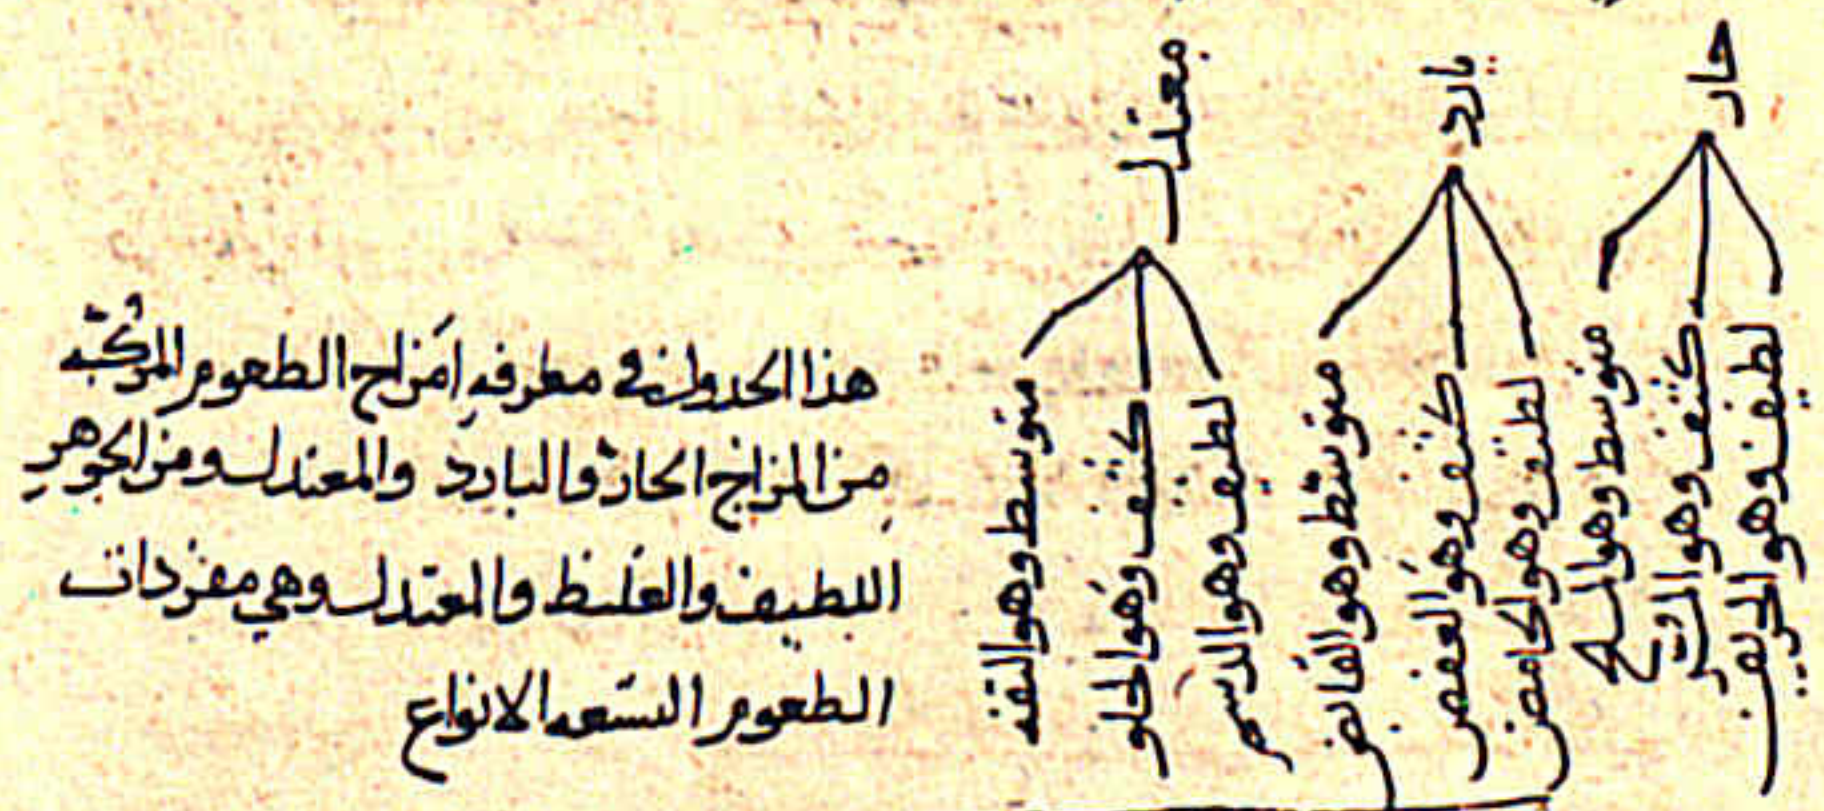 حار
لطيف وهو الحريف
كثيف وهو المر
متوسط وهو المالح
بارد
لطيف وهو الحامض
كثيف وهو العفص
متوسط وهو القابض
معتدل
لطيف وهو الدسم
كثيف وهو الحلو
متوسط وهو التفه
هذا الجدول في معرفة امزاج الطعوم المركبة
من المزاج الحار والبارد والمعتدل ومن الجوهر
اللطيف والغليظ والمعتدل وهي مفردات
الطعوم التسعه الانواع